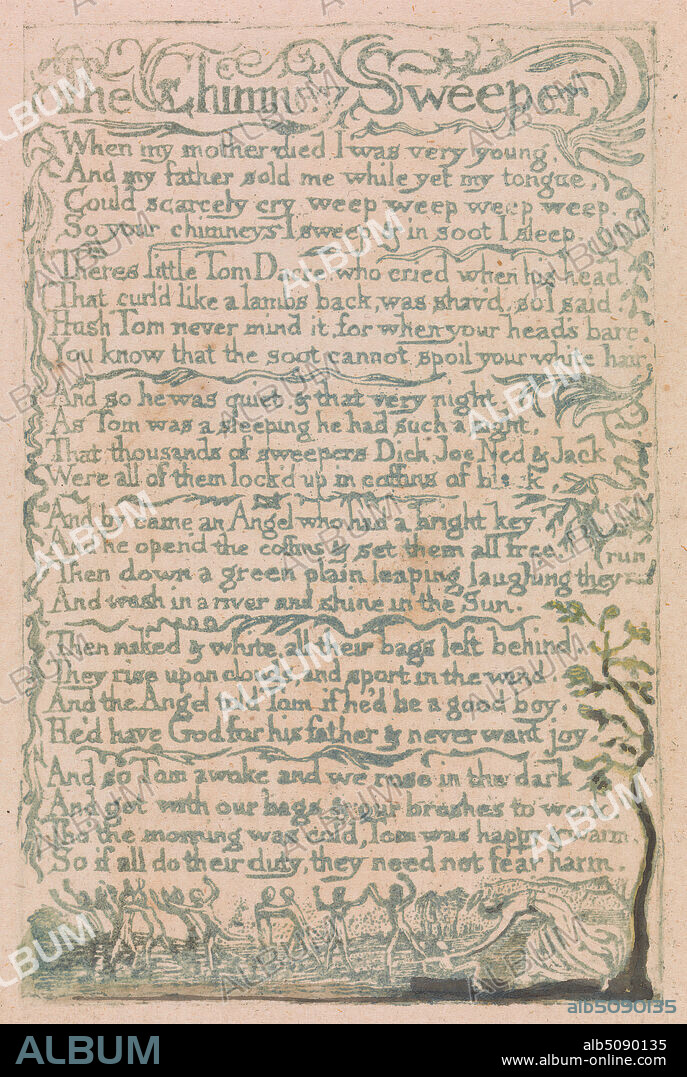 The Chimney Sweeper
When my mother died I was very young,
And my father sold me while yet my tongue,
Could scarcely cry weep weep weep weep.
So your chimneys I sweep & in soot I sleep.
Theres little Tom Dacre, who cried when his head
That curl'd like a lambs back, was shav'd, so I said.
Hush Tom never mind it, for when your head's bare,
You know that the soot cannot spoil your white hair
And so he was quiet, & that very night,
As Tom was a sleeping he had such a sight,
That thousands of sweepers Dick, Joe, Ned & Jack
Were all of them lock'd up in coffins of black,
And by came an Angel who had a bright key
And he open'd the coffins & set them all free.
run
Then down a green plain leaping laughing they
And wash in a river and shine in the Sun.
Then naked & white, all their bags left behind,
They rise upon clouds, and sport in the wind.
And the Angel told Tom, if he'd be a good boy,
He'd have God for his father & never want joy.
And so Tom awoke and we rose in the dark
And got with our bags & our brushes to work
Tho' the morning was cold, Tom was happy & warm.
So if all do their duty, they need not fear harm.
ALBUM
alb5090135
ALBUM
alb5090135
www.album-online.com